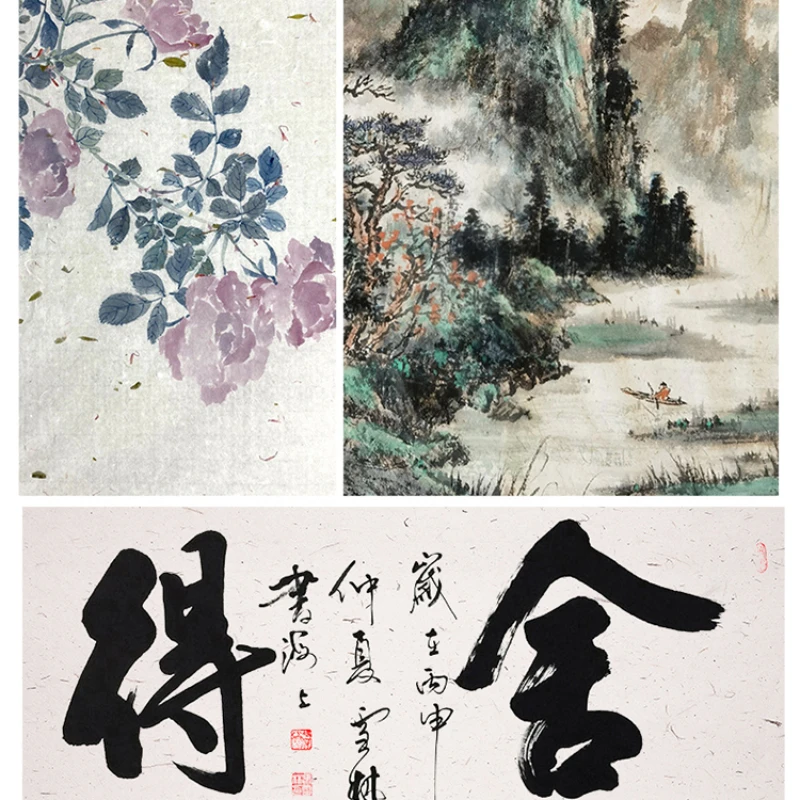 舍
歲在丙申
仲夏雪
書海上
得